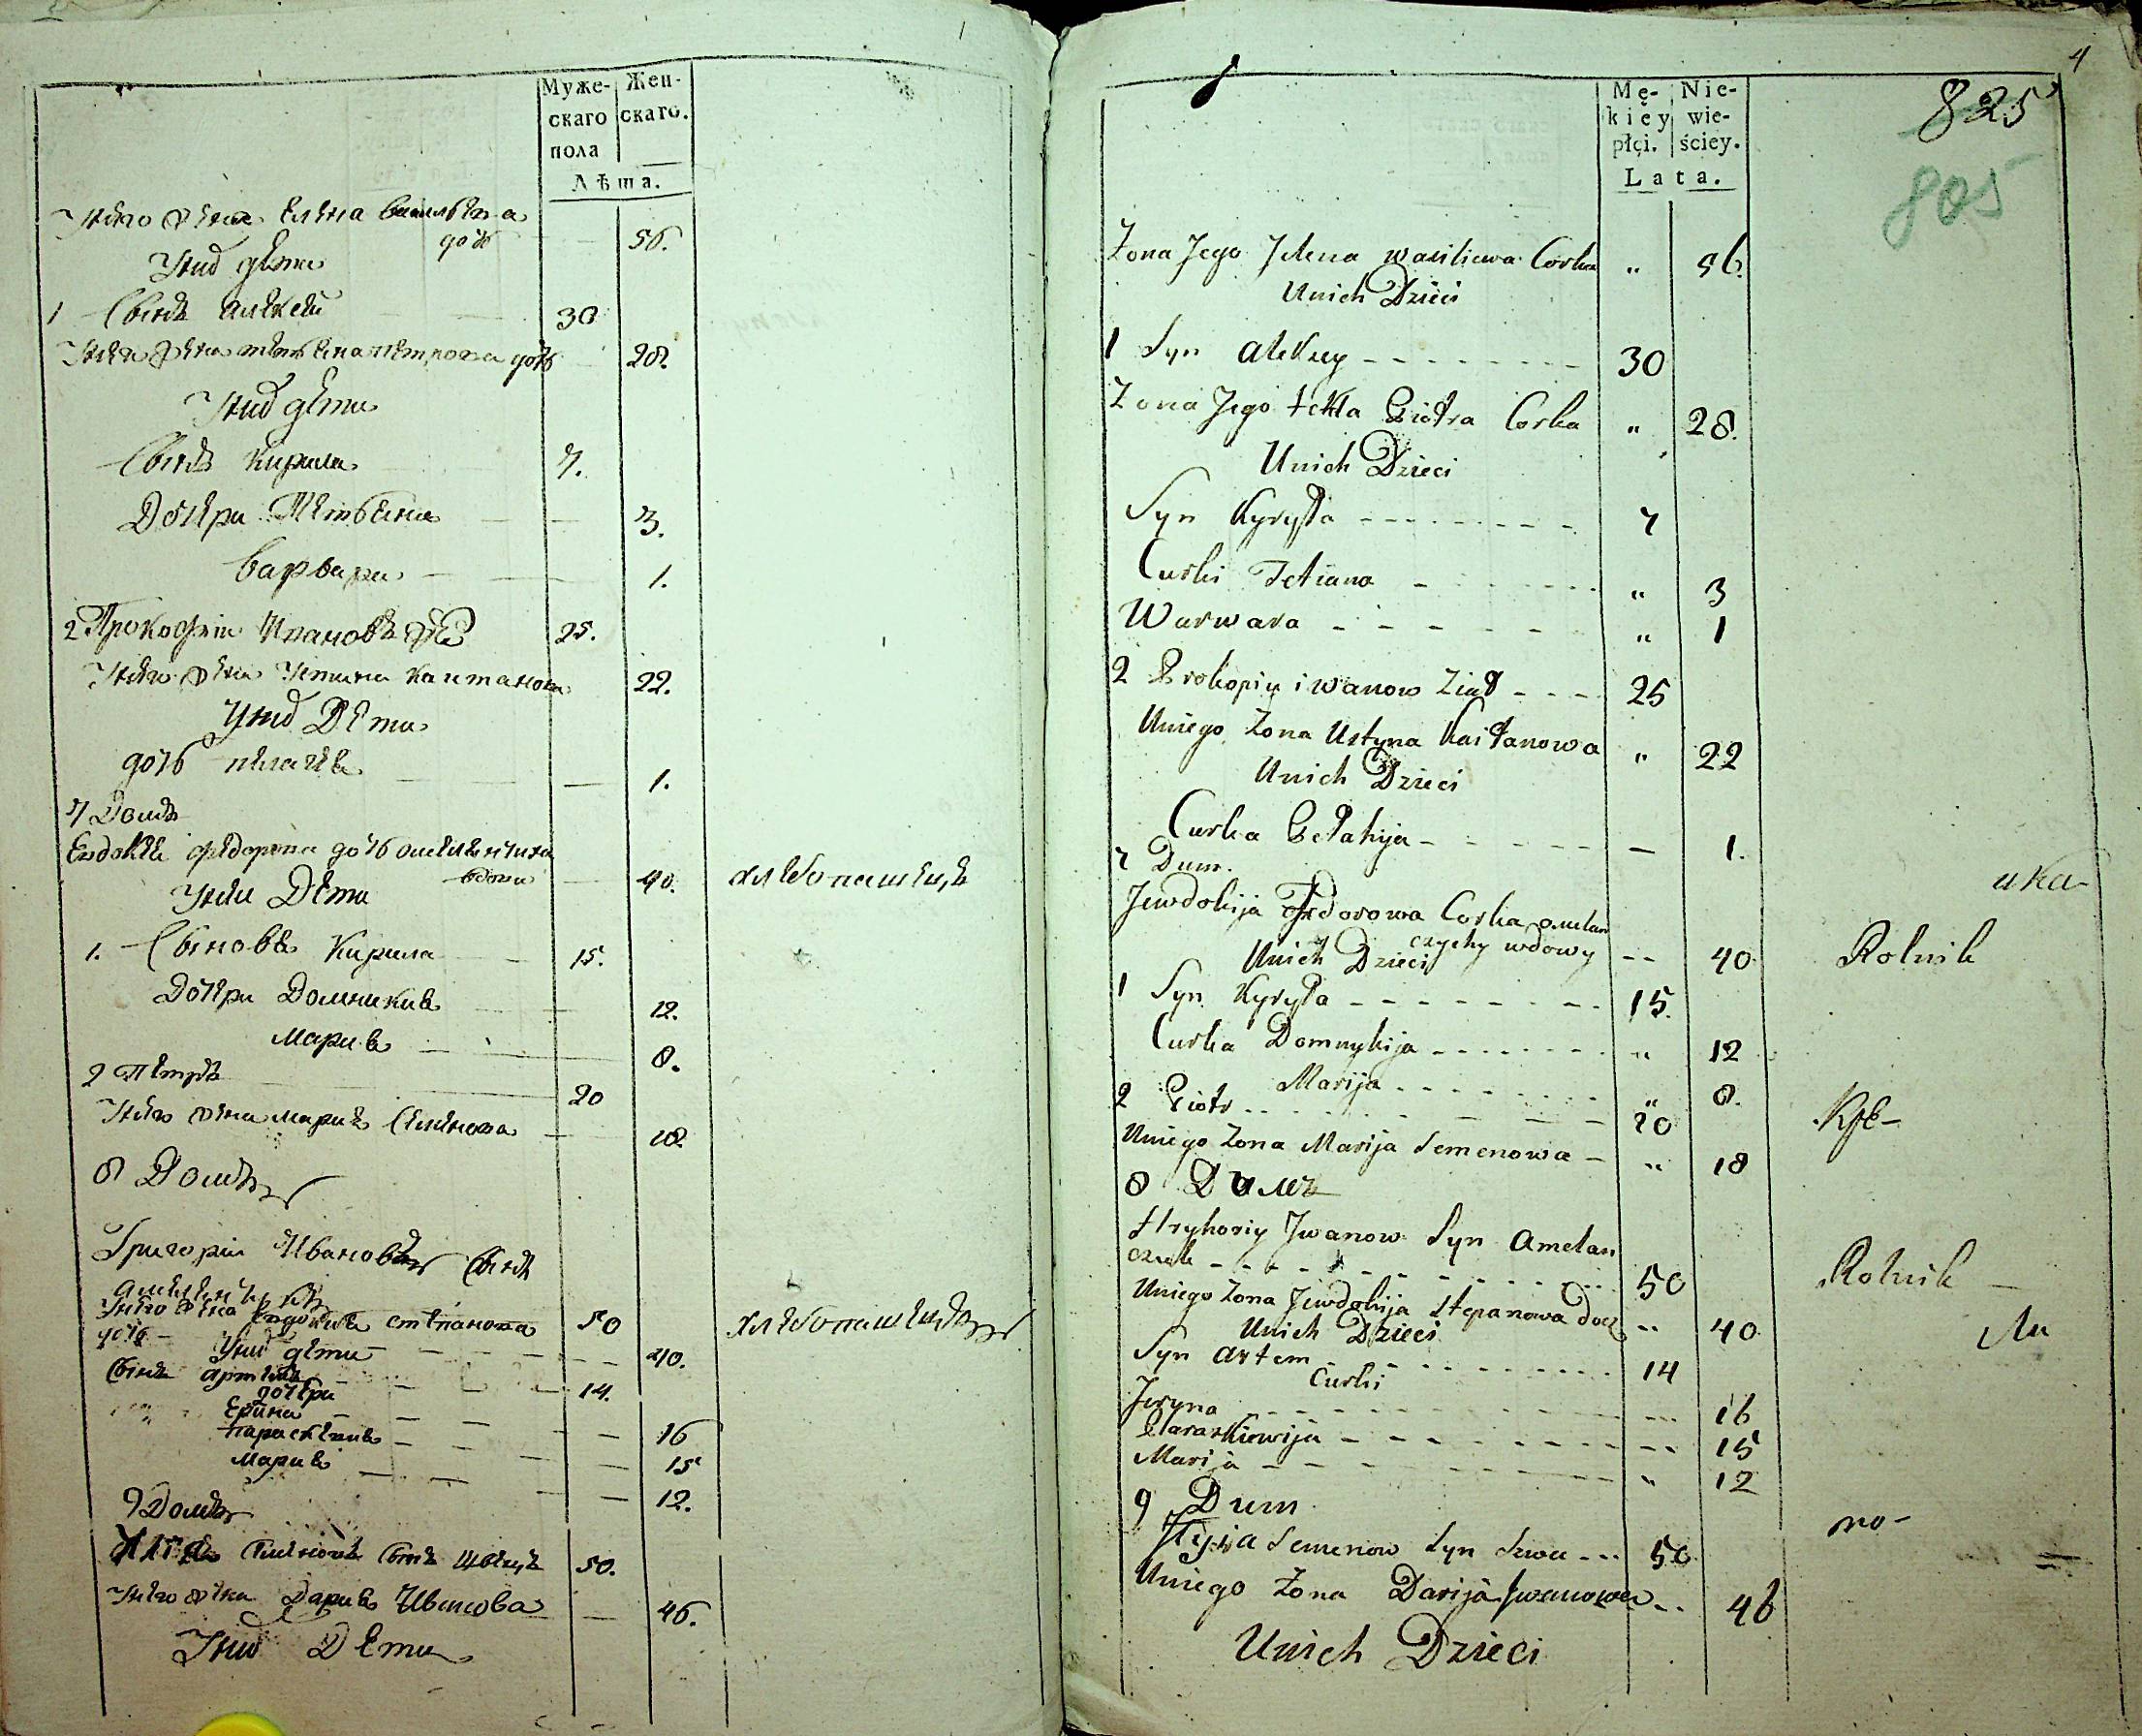 Муже-
скаго
пола
Жен-
скаго.
Лѣта.
Унего жена Елена васильева 56.
дочь
Уних дети
1 Сынъ алексей 30
Унего жена петрова дочь 28.
Уних дети
Сынъ кирила 7.
Дочери Тетьяна 3.
варвара 1.
2 Прокофѣи Ивановъ 25.
Унего жена Устина каитанова 22.
Уних Дети
дочь пелагѣя 1.
7 Домъ
Евдокѣя федорова дочь
вдова 40. хлебопашецъ
Унеи Дети
1. Сыновья Кирила 15.
Дочери Домникия 12.
Мария 8.
2 Петръ 20
Унего жена мария Семенова 18.
8 Домъ
Григории Ивановъ Сынъ
Унего жена Евдокия степанова 50 хлебопашецъ
дочь Уних дети 40.
Сынъ артемъ 14.
дочери
Ерина 16
параскевия 15
Мария 12.
9 Домъ
Семеновъ Сынъ швецъ 50.
Унего жена Дария Иванова 46.
Уних Дети
4
825
805
Mę-
kiey
płçi.
Nie-
wie-
ściey.
Lata.
Żona Jego Jelena wasiliewa Corka " 56.
Unich Dzieci
1 Syn aleksey 30
Żona Jego tekla Piotra Corka " 28.
Unich Dzieci
Syn Kyryła 7
Curki Tetiana " 3
Warwara " 1
2 Prokopiy iwanow Ziat 25
Uniego Żona Ustyna Kaitanowa " 22
Unich Dzieci
Curka Pełahija — 1.
7 Dum.
Jewdokija Fedorowa Corka omelan
czychy wdowy -- 40 Rolnik
Unich Dzieci
1 Syn Kyryła 15.
Curka Domnykija " 12
Marija " 8.
2 Piotr 20
Uniego Żona Marija Semenowa " 18
8 Домъ
Hryhoriy Jwanow Syn Amelan
czuk 50 Rolnik
Uniego Żona Jewdokija Stepanowa docz " 40
Unich Dzieci
Syn artem 14
Curki
Jeryna 16
Paraskiewija 15
Marija " 12
9 Dum
Semenow Syn Szwec 50
Uniego Żona Darija Jwanowa 46
Unich Dzieci